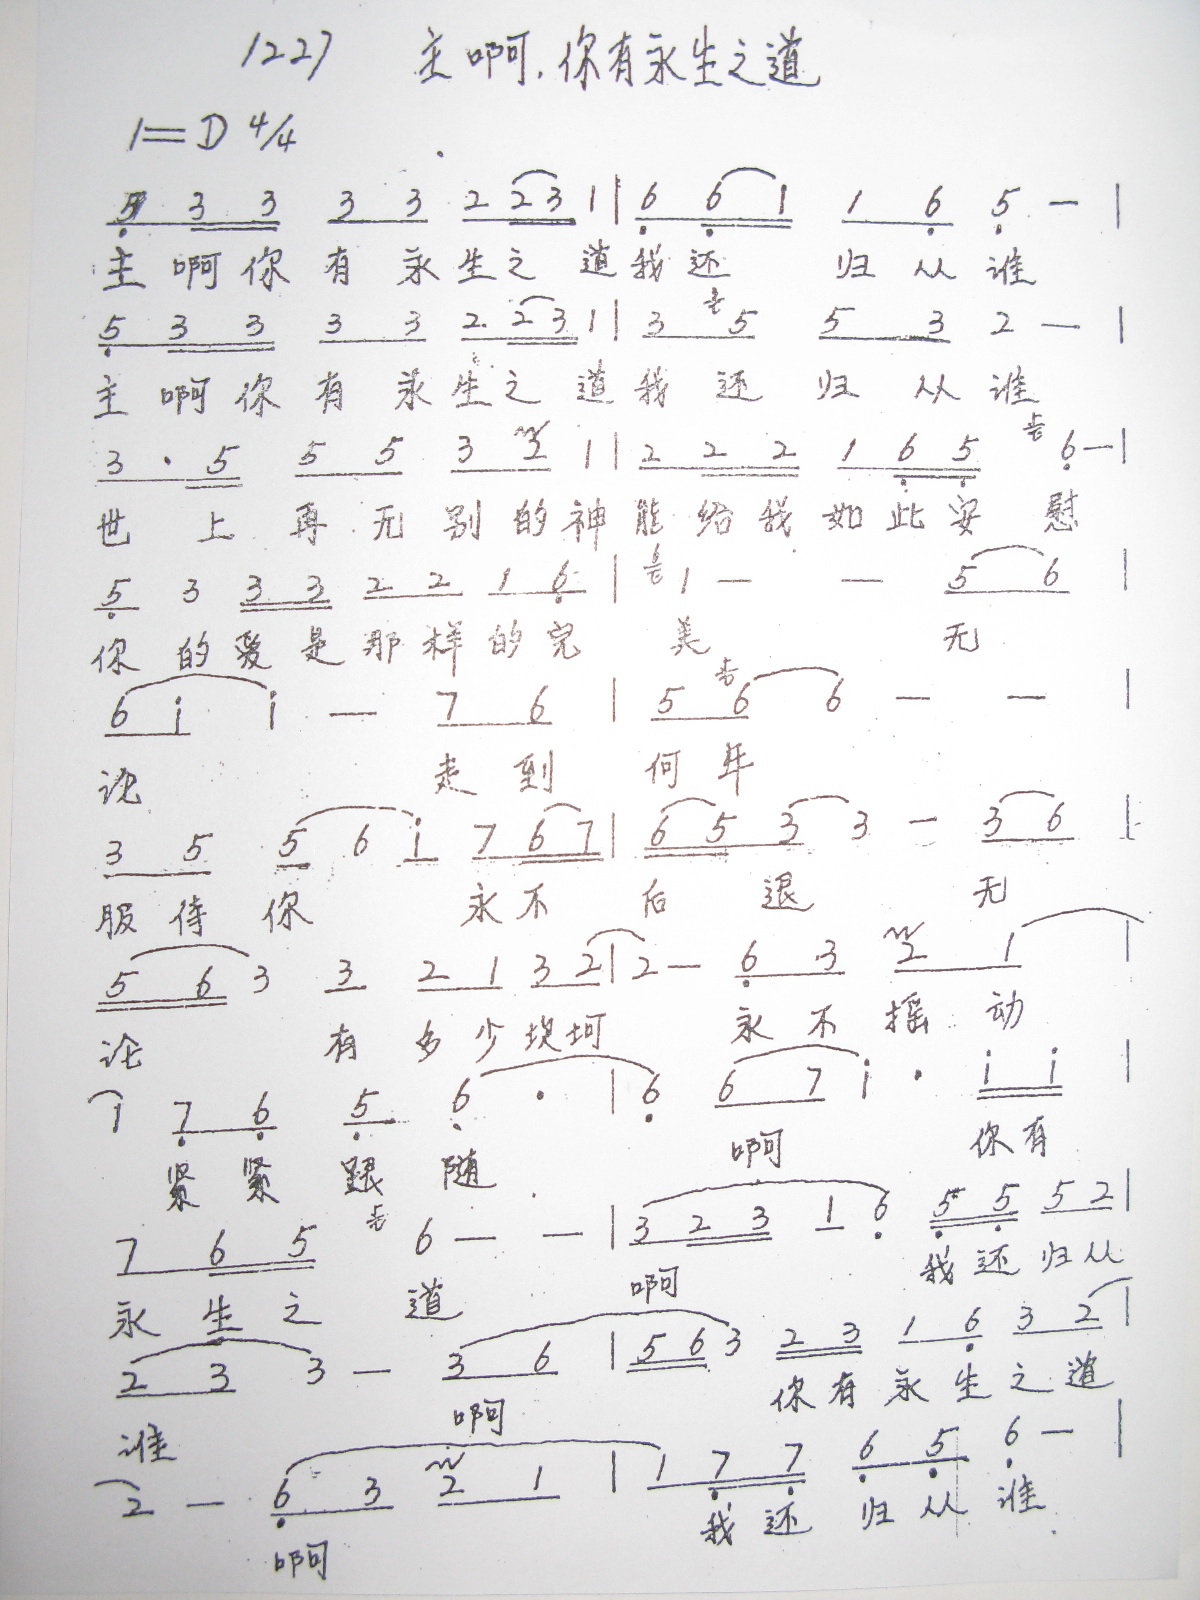 1227 主啊,你有永生之道
1=D 4/4
5 3 3 3 3 2 2 3 1 | 6 6 1 1 6 5 — |
主啊你有永生之道我还归从谁
5 3 3 3 3 2 2 3 1 | 3 5 5 3 2 — |
主啊你有永生之道我还归从谁
3 · 5 5 5 3 2 1 | 2 2 2 1 6 5 6 — |
世上再无别的神能给我如此安慰
5 3 3 3 2 2 1 6 | 1 — — 5 6 |
你的爱是那样的完美 无
6 i i — 7 6 | 5 6 6 — — |
论 走到何年
3 5 5 6 i 7 6 7 | 6 5 3 3 — 3 6 |
服侍你 永不后退 无
5 6 3 3 2 1 3 2 | 2 — 6 3 2 1 |
论 有多少坎坷 永不摇动
1 7 6 5 6 · | 6 6 7 i · i i |
紧紧跟随 啊 你有
7 6 5 6 — — | 3 2 3 1 6 5 5 5 2 |
永生之道 啊 我还归从
2 3 3 — 3 6 | 5 6 3 2 3 1 6 3 2 |
谁 啊 你有永生之道
2 — 6 3 2 1 | 1 7 7 6 5 6 — |
啊 我还归从谁